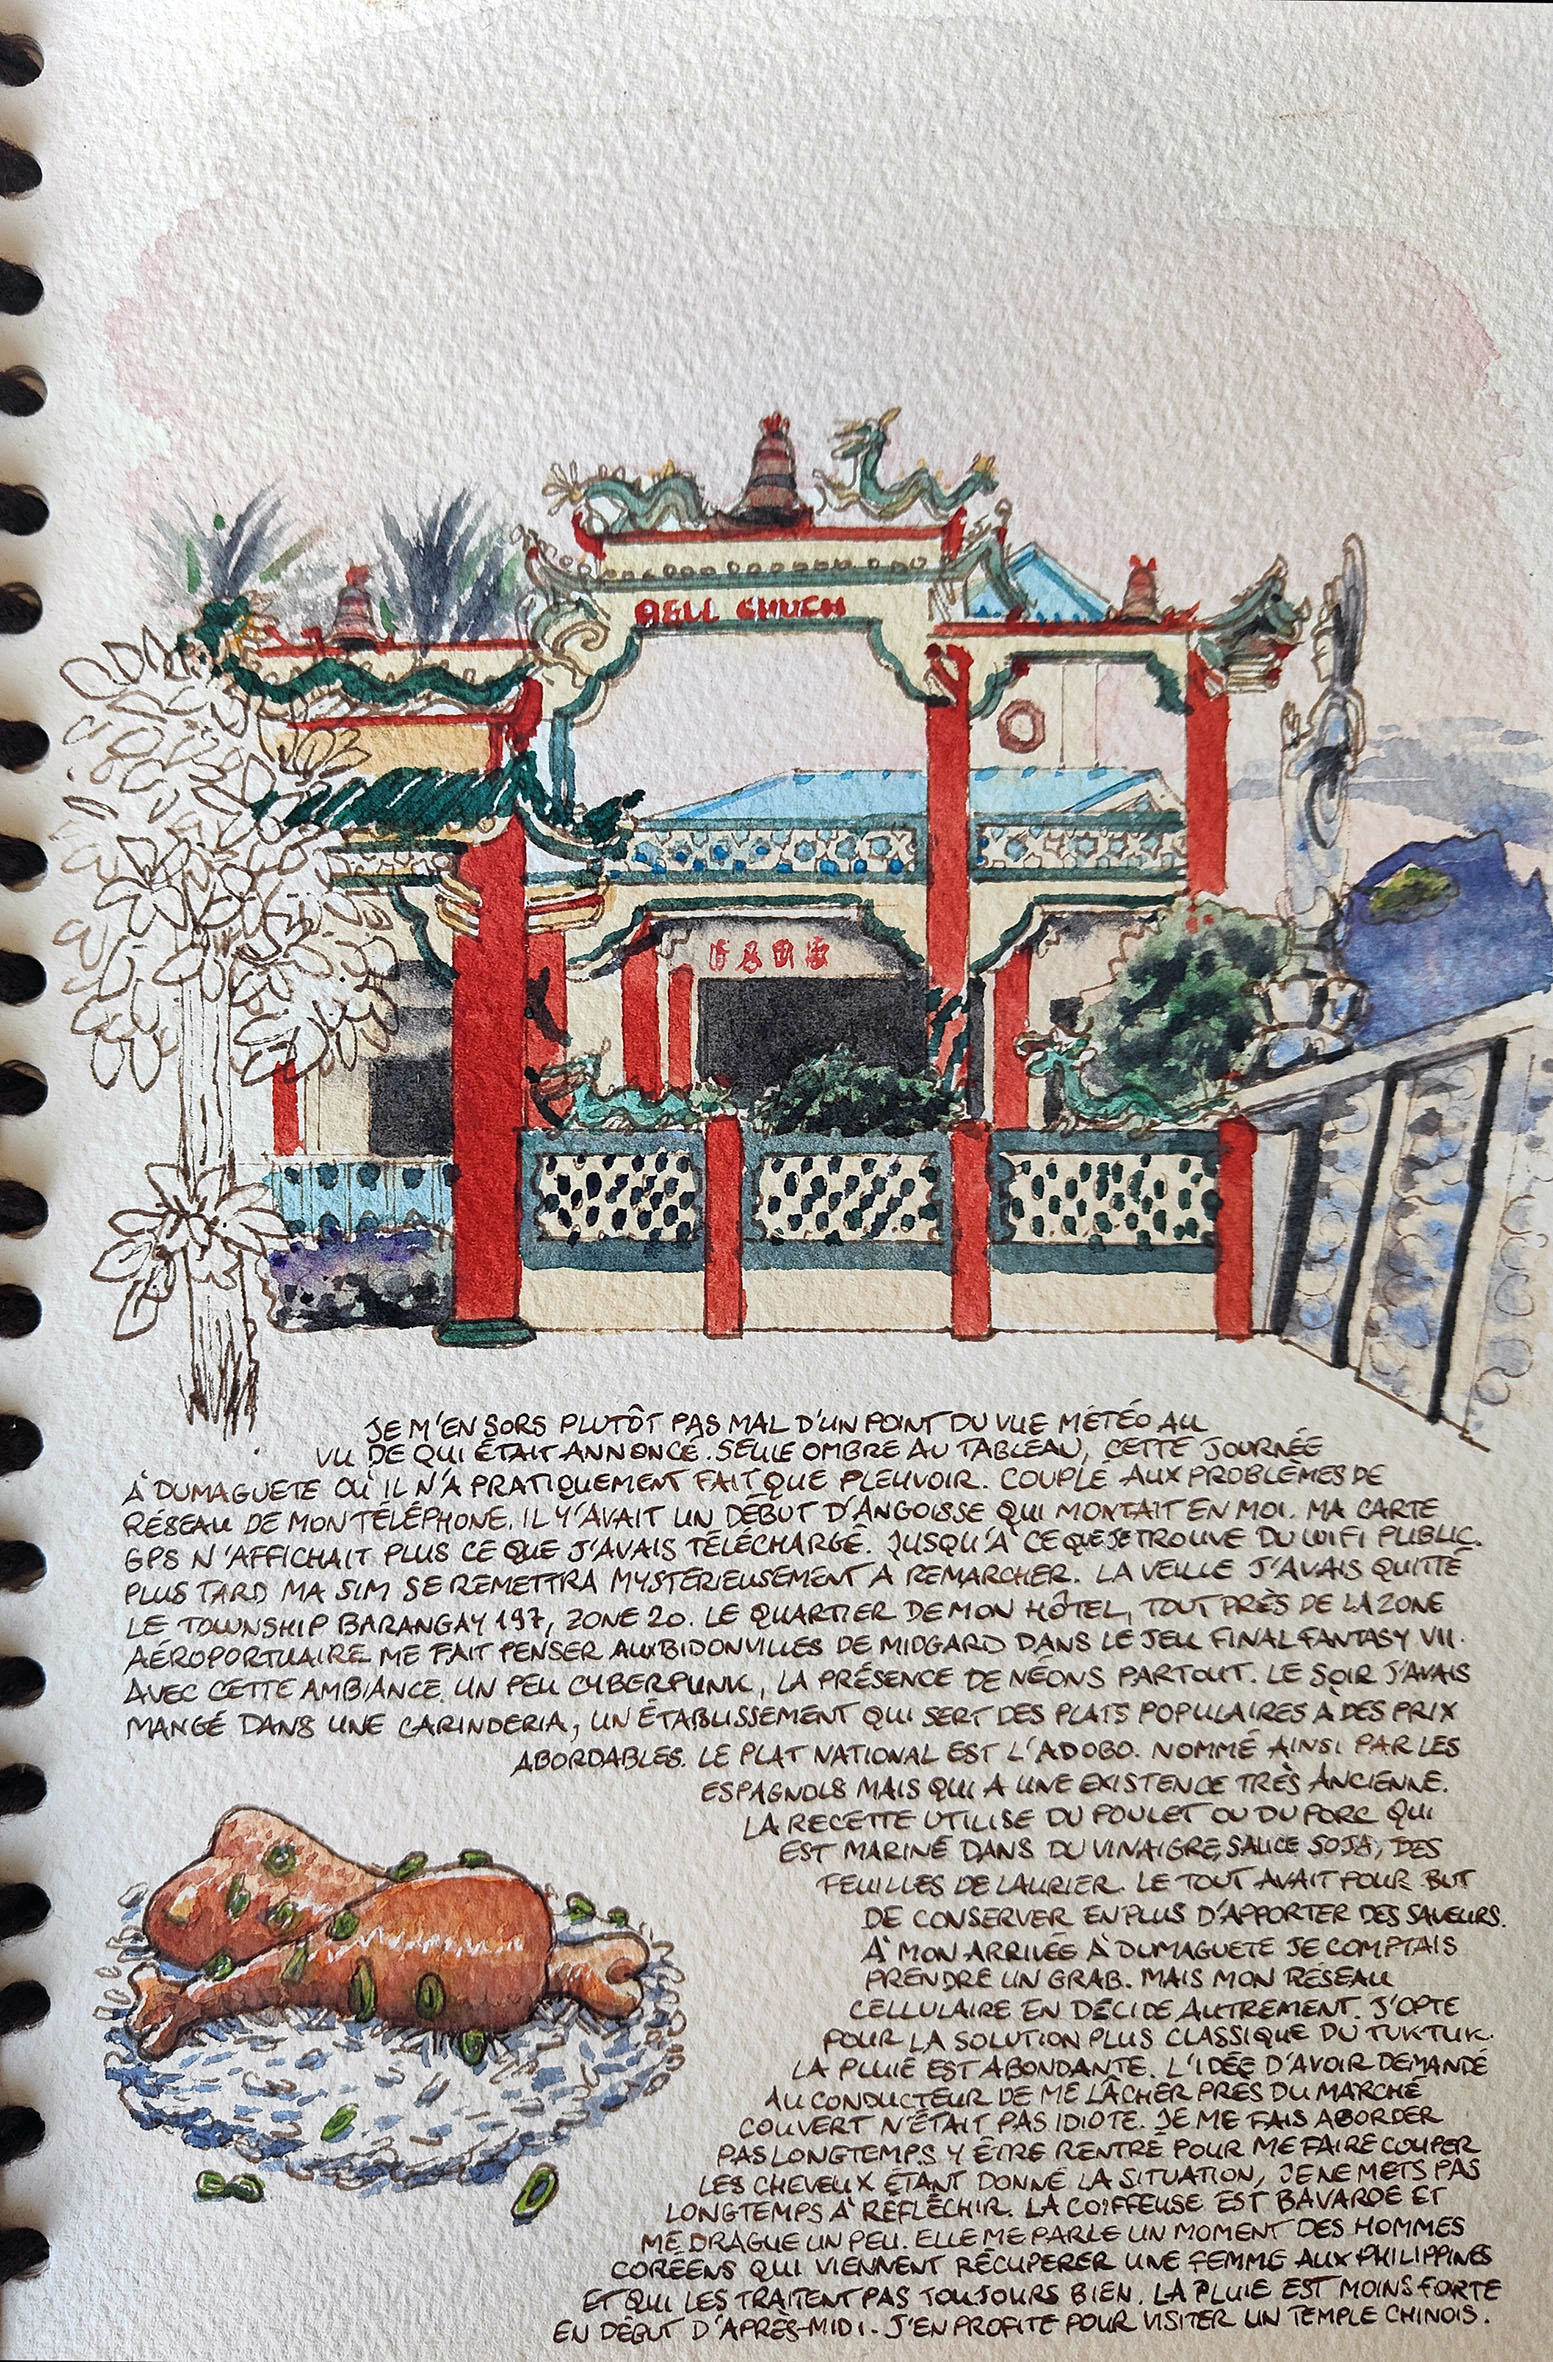 BELL CHUCH
JE M'EN SORS PLUTÔT PAS MAL D'UN POINT DU VUE MÉTÉO AU
VU DE QUI ÉTAIT ANNONCÉ. SEULE OMBRE AU TABLEAU, CETTE JOURNÉE
À DUMAGUETE OÙ IL N'A PRATIQUEMENT FAIT QUE PLEUVOIR. COUPLÉ AUX PROBLÈMES DE
RÉSEAU DE MON TÉLÉPHONE. IL Y'AVAIT UN DÉBUT D'ANGOISSE QUI MONTAIT EN MOI. MA CARTE
GPS N'AFFICHAIT PLUS CE QUE J'AVAIS TÉLÉCHARGÉ. JUSQU'À CE QUE JE TROUVE DU WIFI PUBLIC.
PLUS TARD MA SIM SE REMETTRA MYSTÉRIEUSEMENT A REMARCHER. LA VEILLE J'AVAIS QUITTÉ
LE TOWNSHIP BARANGAY 197, ZONE 20. LE QUARTIER DE MON HÔTEL, TOUT PRÈS DE LA ZONE
AÉROPORTUAIRE ME FAIT PENSER AUX BIDONVILLES DE MIDGARD DANS LE JEU FINAL FANTASY VII.
AVEC CETTE AMBIANCE UN PEU CYBERPUNK, LA PRÉSENCE DE NÉONS PARTOUT. LE SOIR J'AVAIS
MANGÉ DANS UNE CARINDERIA, UN ÉTABLISSEMENT QUI SERT DES PLATS POPULAIRES À DES PRIX
ABORDABLES. LE PLAT NATIONAL EST L'ADOBO. NOMMÉ AINSI PAR LES
ESPAGNOLS MAIS QUI A UNE EXISTENCE TRÈS ANCIENNE.
LA RECETTE UTILISE DU POULET OU DU PORC QUI
EST MARINÉ DANS DU VINAIGRE, SAUCE SOJA, DES
FEUILLES DE LAURIER. LE TOUT AVAIT POUR BUT
DE CONSERVER EN PLUS D'APPORTER DES SAVEURS.
À MON ARRIVÉE À DUMAGUETE JE COMPTAIS
PRENDRE UN GRAB. MAIS MON RÉSEAU
CELLULAIRE EN DÉCIDE AUTREMENT. J'OPTE
POUR LA SOLUTION PLUS CLASSIQUE DU TUKTUK.
LA PLUIE EST ABONDANTE. L'IDÉE D'AVOIR DEMANDÉ
AU CONDUCTEUR DE ME LÂCHER PRÈS DU MARCHÉ
COUVERT N'ÉTAIT PAS IDIOTE. JE ME FAIS ABORDER
PAS LONGTEMPS Y ÊTRE RENTRÉ POUR ME FAIRE COUPER
LES CHEVEUX ÉTANT DONNÉ LA SITUATION, JE NE METS PAS
LONGTEMPS À RÉFLÉCHIR. LA COIFFEUSE EST BAVARDE ET
ME DRAGUE UN PEU. ELLE ME PARLE UN MOMENT DES HOMMES
CORÉENS QUI VIENNENT RÉCUPÉRER UNE FEMME AUX PHILIPPINES
ET QUI LES TRAITENT PAS TOUJOURS BIEN. LA PLUIE EST MOINS FORTE
EN DÉBUT D'APRÈS-MIDI. J'EN PROFITE POUR VISITER UN TEMPLE CHINOIS.